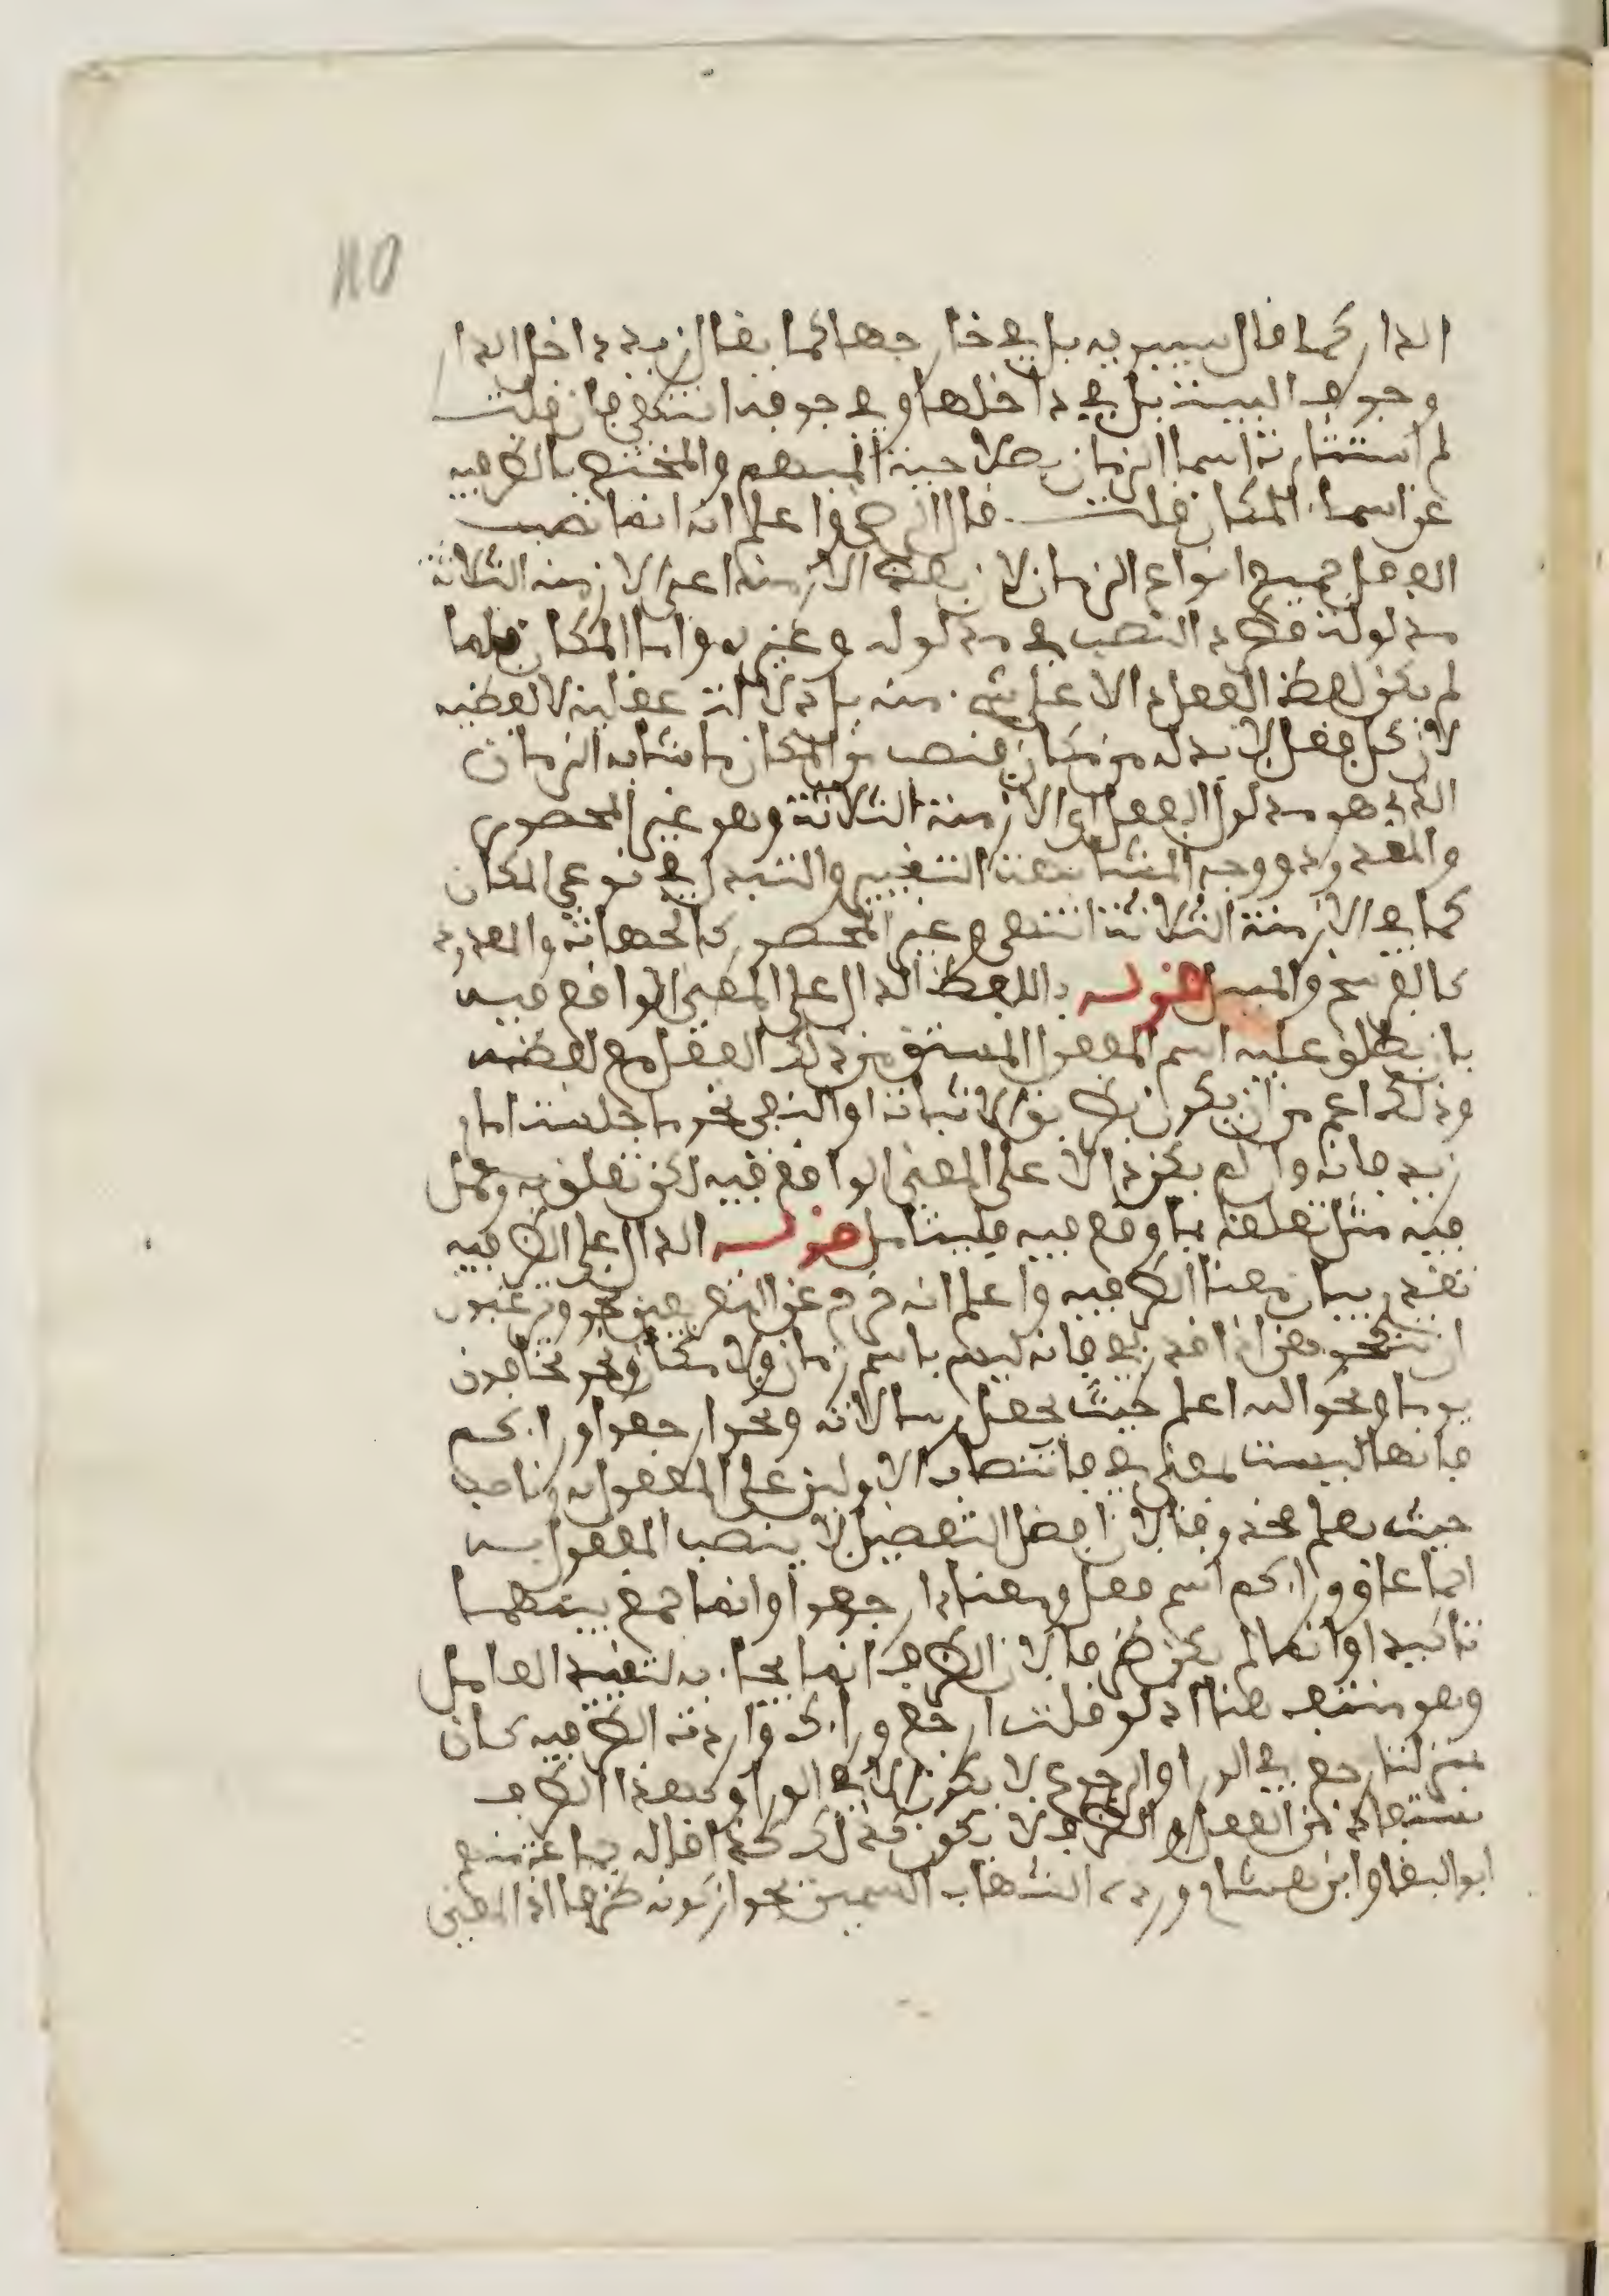 110
الدار كما قال سيبويه بل في خارجها كما يقال زيد داخل الدار
وجوف البيت بل في داخلها وفي جوفه انتهى فان قلت
لم استثارت اسما الزمان بصلاحية المبهم والمختص بالظرفيه
عن اسماء المكان قلت قال الرضي واعلم انه انما نصب
الفعل جميع انواع الزمان لان بعض الازمنه اعني الازمنه الثلاثة
مدلوله فطرد النصب في مدلوله وغيره واما المكان فلما
لم يكن لفظ الفعل دالا على شيء منه بل دلالته عقليه لا لفظيه
لان كل فعل لا بد له من مكان فنصب من المكان ما شابه الزمان
الذي هو مدلول الفعل اي الازمنة الثلاثة وهو غير المحصور
والمعدود ووجه المشابهة التغيير والتبدل في نوعي المكان
كما في الازمنة الثلاثة انتهى وغير المحصور كالجهات والمعدود
كالفرسخ والميل قوله باللفظ الدال على المعنى الواقع فيه
بان يطلق عليه اسم المفعول المستق من ذلك الفعل مع لفظه
وذلك اعم من ان يكون بطريق الاثبات او النفي نحو ما جلست امام
زيد فانه وان لم يكن دالا على المعنى الواقع فيه لكن تعلق به وعمل
فيه مثل تعلقه بما وقع فيه فليتامل قوله الدال على الظرفيه
تقدم بيان معنا الظرفيه واعلم انه خرج عن التعريف نحو وترغبون
ان تنكحوهن اذا قدر بفي فانه ليس باسم زمان ولا مكان ونحو يخافون
يوما ونحو الله اعلم حيث يجعل رسالاته ونحو ارجعوا وراءكم
فانها ليست بمعنى في فانتصاب الاولين على المفعول به وناصب
حيث يعلم محذوفا لان افعل التفضيل لا ينصب المفعول به
اجماعا ووراءكم اسم فعل ومعناه ارجعوا وانما جمع بينهما
تاكيدا وانما لم يكن ظرفا لان الظرف انما يجاء به لتقييد العامل
وهو منتف هنا اذ لو قلت ارجع وراءك واردت الظرفيه كان
بمنزلة ارجع في الورا والرجوع لا يكون الا في الورا وكهذا الظرف
يستفاد من الفعل والظرف لا يكون كذلك كذا قاله جماعة منهم
ابو البقا وابن هشام ورده الشهاب السمين بجواز كونه ظرفا اذ المعنى